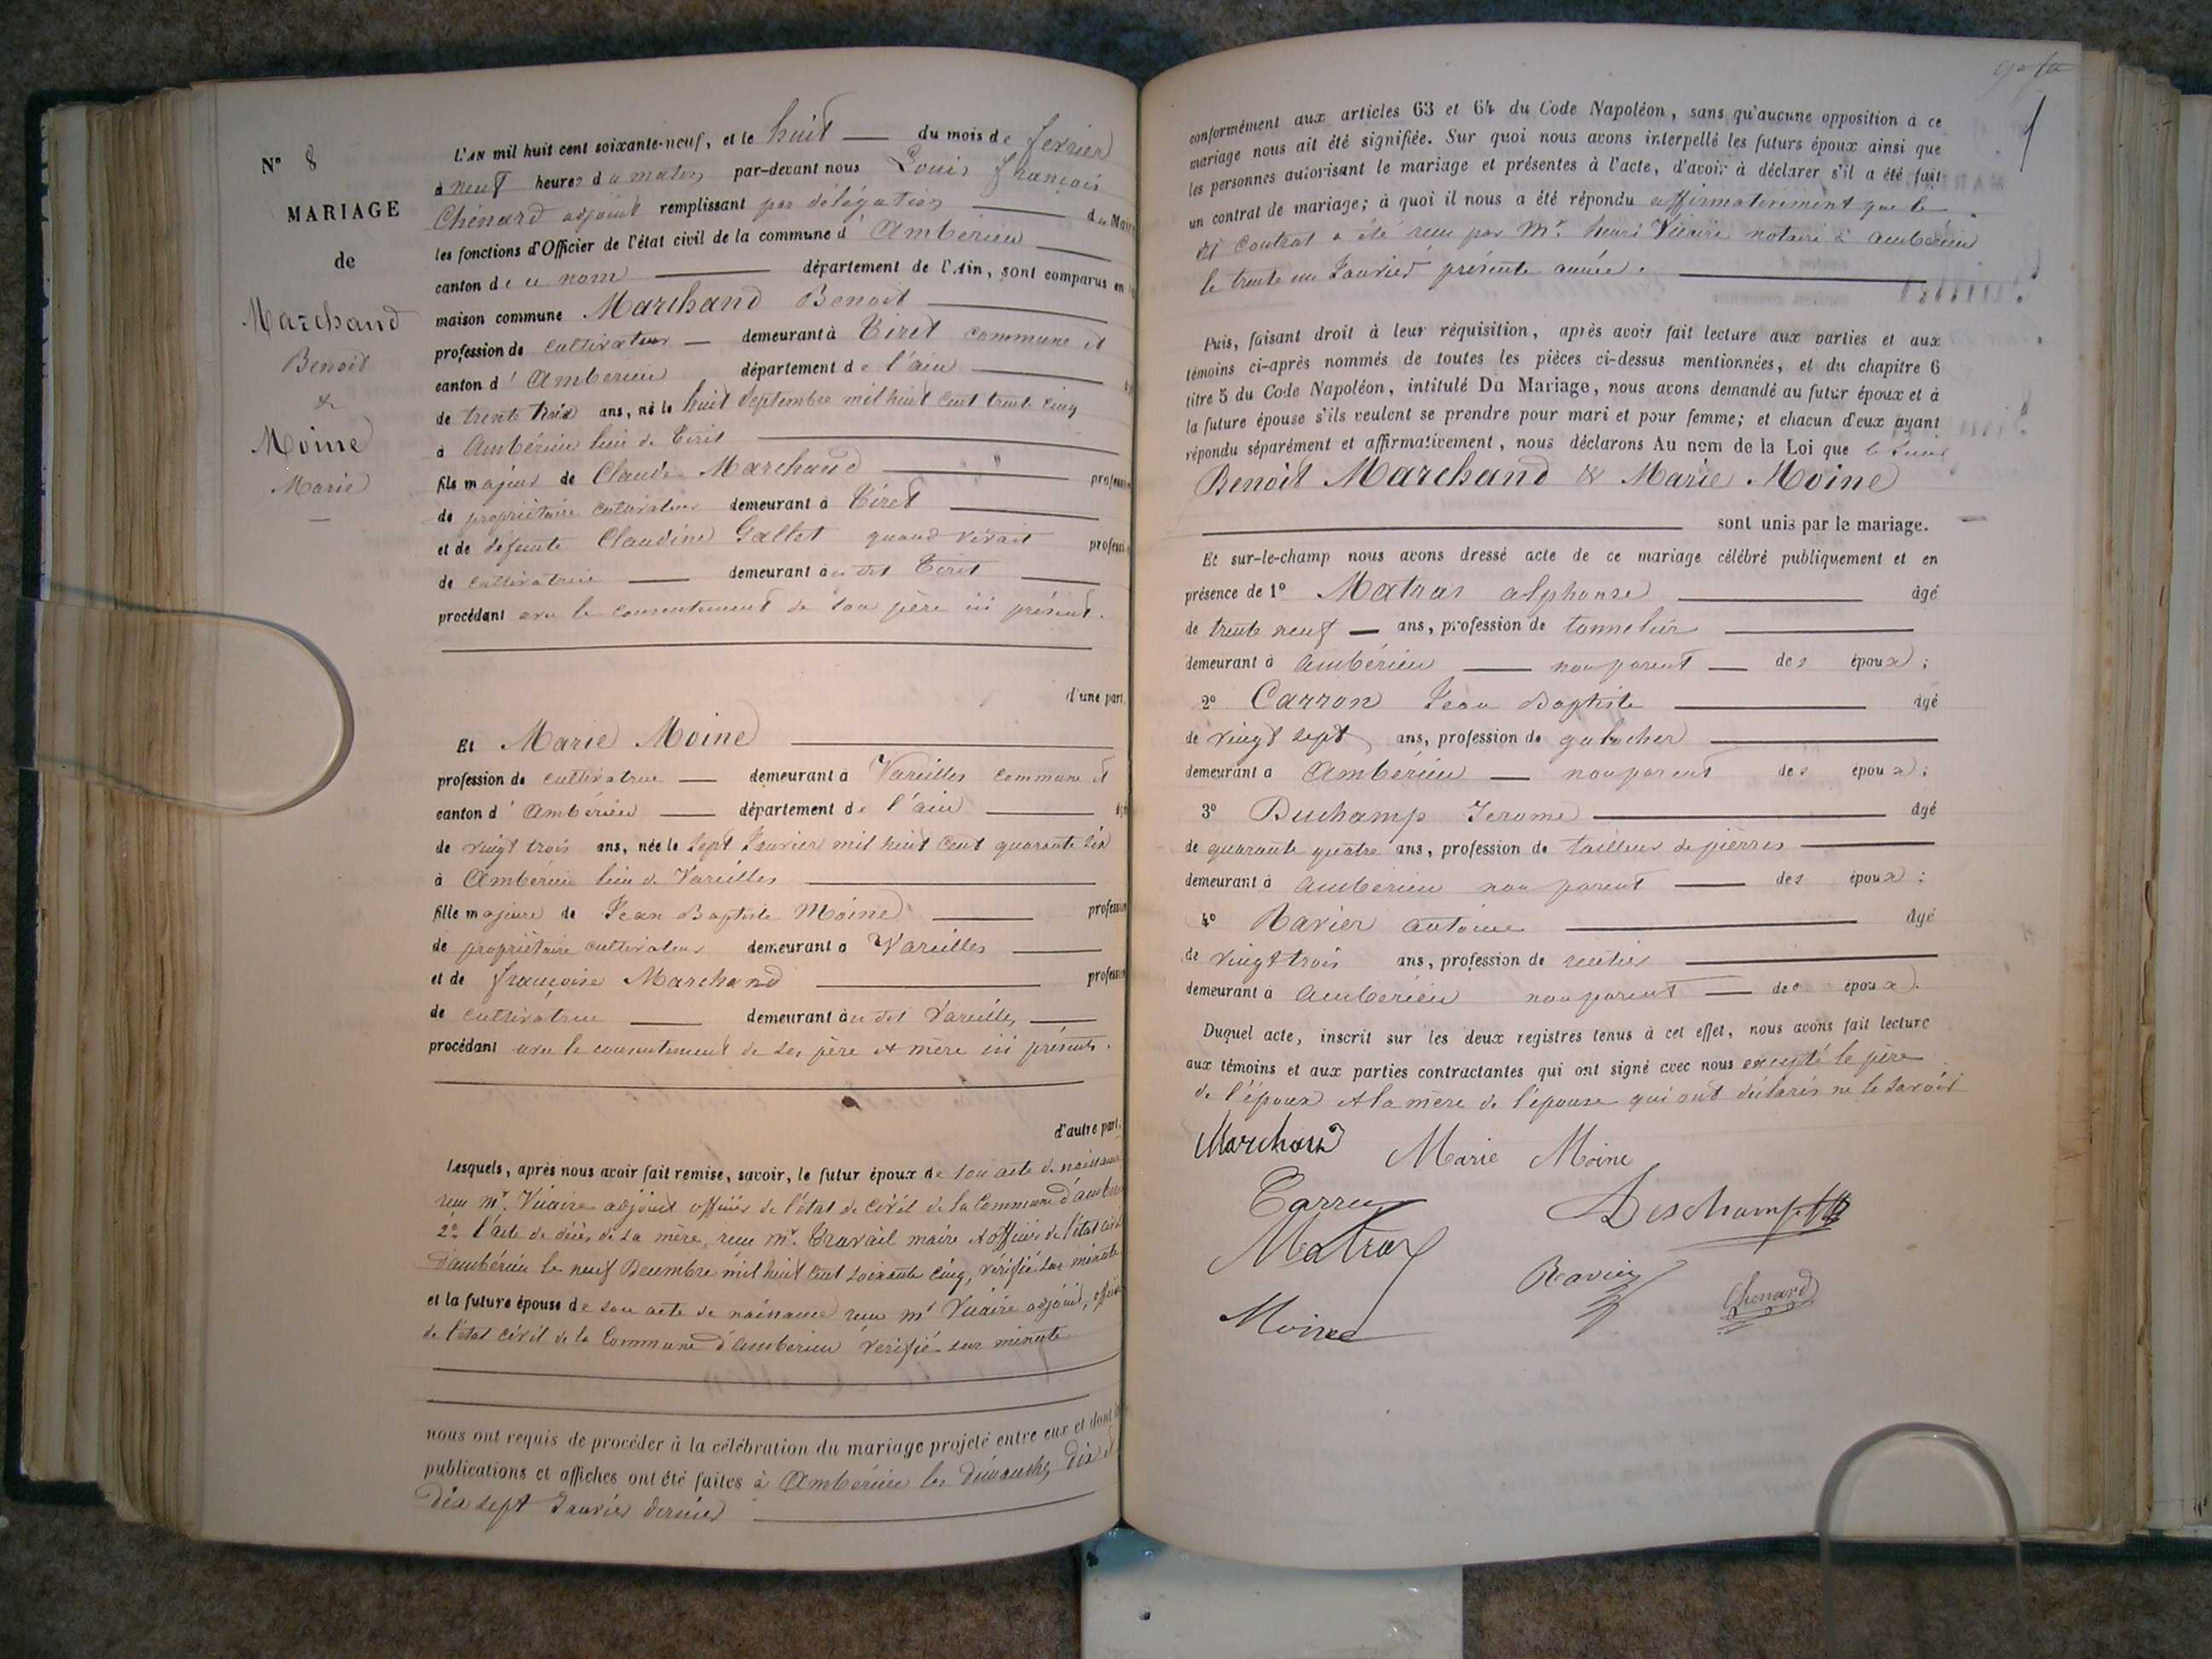 N° 8
MARIAGE
de
Marchand
Benoit
&
Moine
Marie
L'AN mil huit cent soixante-neuf, et le huit du mois de fevrier
à neuf heures du matin par-devant nous Louis françois
Chénard adjoint remplissant par délégation du Maire
les fonctions d'Officier de l'état civil de la commune d'Ambérieu
canton de ce nom département de l'Ain, sont comparus en
maison commune Marchand Benoit
profession de cultivateur demeurant à Tiret commune et
canton d'Amberieu département de l'ain
de trente trois ans, né le huit Septembre mil huit cent trente cinq
à Ambérieu lieu de Tiret
fils majeur de Claude Marchand profession
de propriétaire cultivateur demeurant à Tiret
et de defunte Claudine Gallet quand vivait profession
de cultivatrice demeurant au dit Tiret
procédant avec le consentement de son père ici présent.
d'une part,
Et Marie Moine
profession de cultivatrice demeurant à Vareilles commune et
canton d'Ambérieu département de l'ain
de vingt trois ans, née le sept Janvier mil huit cent quarante six
à Ambérieu lieu de Vareilles
fille majeure de Jean Baptiste Moine profession
de propriétaire cultivateur demeurant à Vareilles
et de françoise Marchand profession
de cultivatrice demeurant au dit Vareilles
procédant avec le consentement de ses père et mère ici présents.
d'autre part;
Lesquels, après nous avoir fait remise, savoir, le futur époux de son acte de naissance
reçu Mr. Vuaire adjoint officier de l'état de civil de la Commune d'ambérieu
2° l'acte de décès de sa mère, reçu Mr. Travail maire et officier de l'état civil
d'ambérieu le neuf Decembre mil huit cent soixante cinq, vérifié sur minute
et la future épouse de son acte de naissance reçu Mr Vuaire adjoint, officier
de l'état civil de la Commune d'amberieu vérifié sur minute
nous ont requis de procéder à la célébration du mariage projeté entre eux et dont les
publications et affiches ont été faites à Ambérieu les dimanches dix et
dix sept Janvier dernier
conformément aux articles 63 et 64 du Code Napoléon, sans qu'aucune opposition à ce
mariage nous ait été signifiée. Sur quoi nous avons interpellé les futurs époux ainsi que
les personnes autorisant le mariage et présentes à l'acte, d'avoir à déclarer s'il a été fait
un contrat de mariage; à quoi il nous a été répondu affirmativement que le
dit contrat a été reçu par Mr. henri Vuaire notaire à ambérieu
le trente un Janvier présente année.
Puis, faisant droit à leur réquisition, après avoir fait lecture aux parties et aux
témoins ci-après nommés de toutes les pièces ci-dessus mentionnées, et du chapitre 6
titre 5 du Code Napoléon, intitulé Du Mariage, nous avons demandé au futur époux et à
la future épouse s'ils veulent se prendre pour mari et pour femme; et chacun d'eux ayant
répondu séparément et affirmativement, nous déclarons Au nom de la Loi que
Benoit Marchand & Marie Moine
sont unis par le mariage.
Et sur-le-champ nous avons dressé acte de ce mariage célébré publiquement et en
présence de 1° Matras alphonse âgé
de trente neuf ans, profession de tonnelier
demeurant à ambérieu non parent des époux;
2° Carron Jean Baptiste âgé
de vingt sept ans, profession de galocher
demeurant à Ambérieu non parent des époux;
3° Duchamp Jerome âgé
de quarante quatre ans, profession de tailleur de pierres
demeurant à ambérieu non parent des époux;
4° Ravier antoine âgé
de vingt trois ans, profession de rentier
demeurant à ambérieu non parent des époux.
Duquel acte, inscrit sur les deux registres tenus à cet effet, nous avons fait lecture
aux témoins et aux parties contractantes qui ont signé avec nous excepté le père
de l'époux et la mère de l'épouse qui ont déclarés ne le savoir
Marchand Marie Moine
Deschamp
Matras
Ravier Chenard
Moine